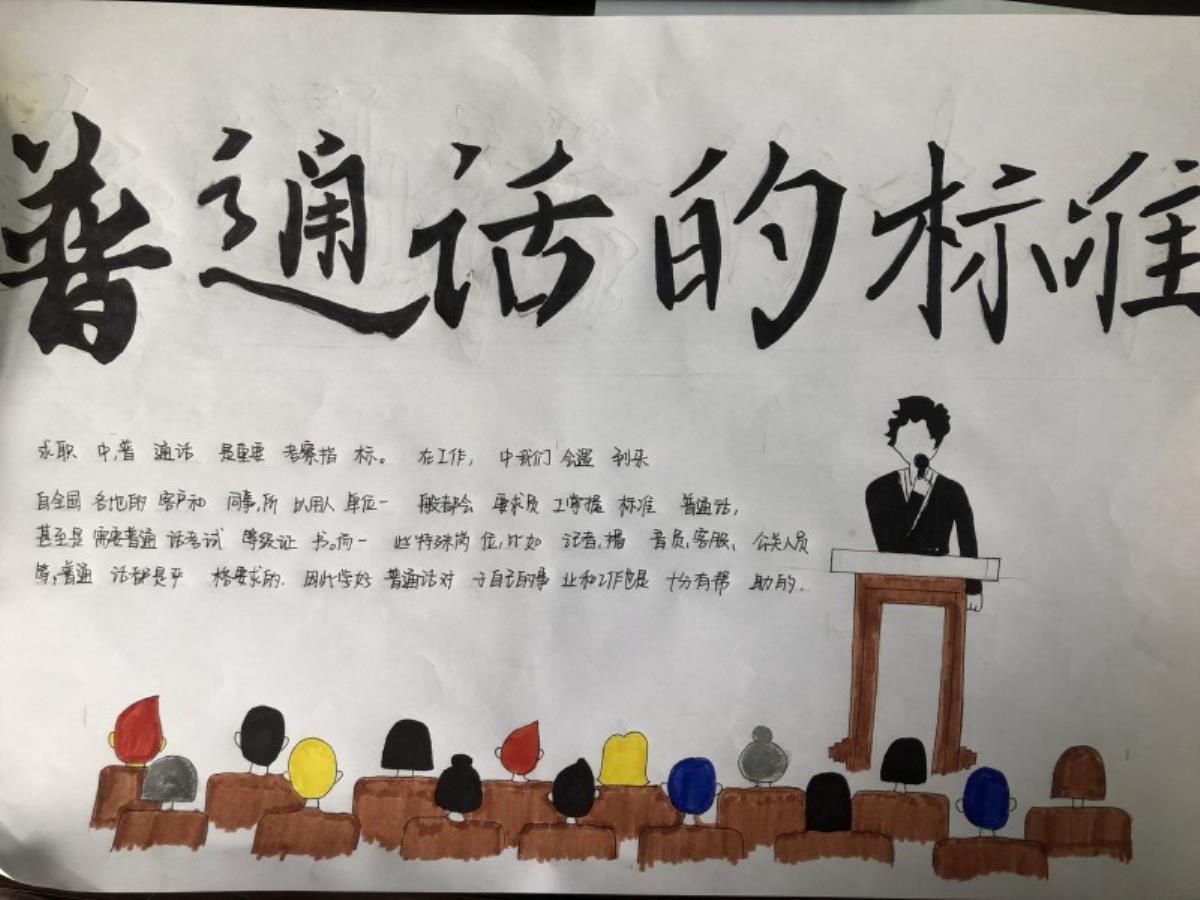 普通话的标准
求职中,普通话是重要考察指标。在工作,中我们会遇到来
自全国各地的客户和同事,所以用人单位一般都会要求员工掌握标准普通话,
甚至是需要普通话考试等级证书。而一些特殊岗位,比如记者,播音员,客服、公关人员
等,普通话都是严格要求的.因此学好普通话对于自己的事业和工作也是十分有帮助的.